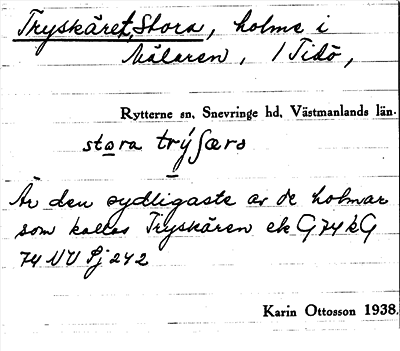 Tryskäret, Stora, holme i
Mälaren, / Tidö,
Rytterne sn, Snevringe hd, Västmanlands län.
stora trýʃæro
Är den sydligaste av de holmar
som kallas Tryskären ek G 74 k G
74 NV Sj 242
Karin Ottosson 1938.